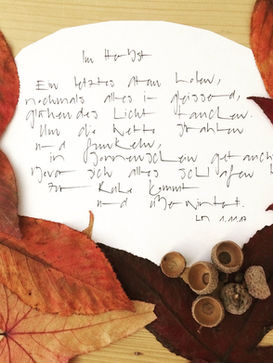 Im Herbst
Ein letztes Atem holen,
nochmals alles in gleissend,
glühendes Licht tauchen.
Um die Wette strahlen
und funkeln,
in Sonnenschein getaucht
bevor sich alles schlafen
zur Ruhe kommt
und überwintert.